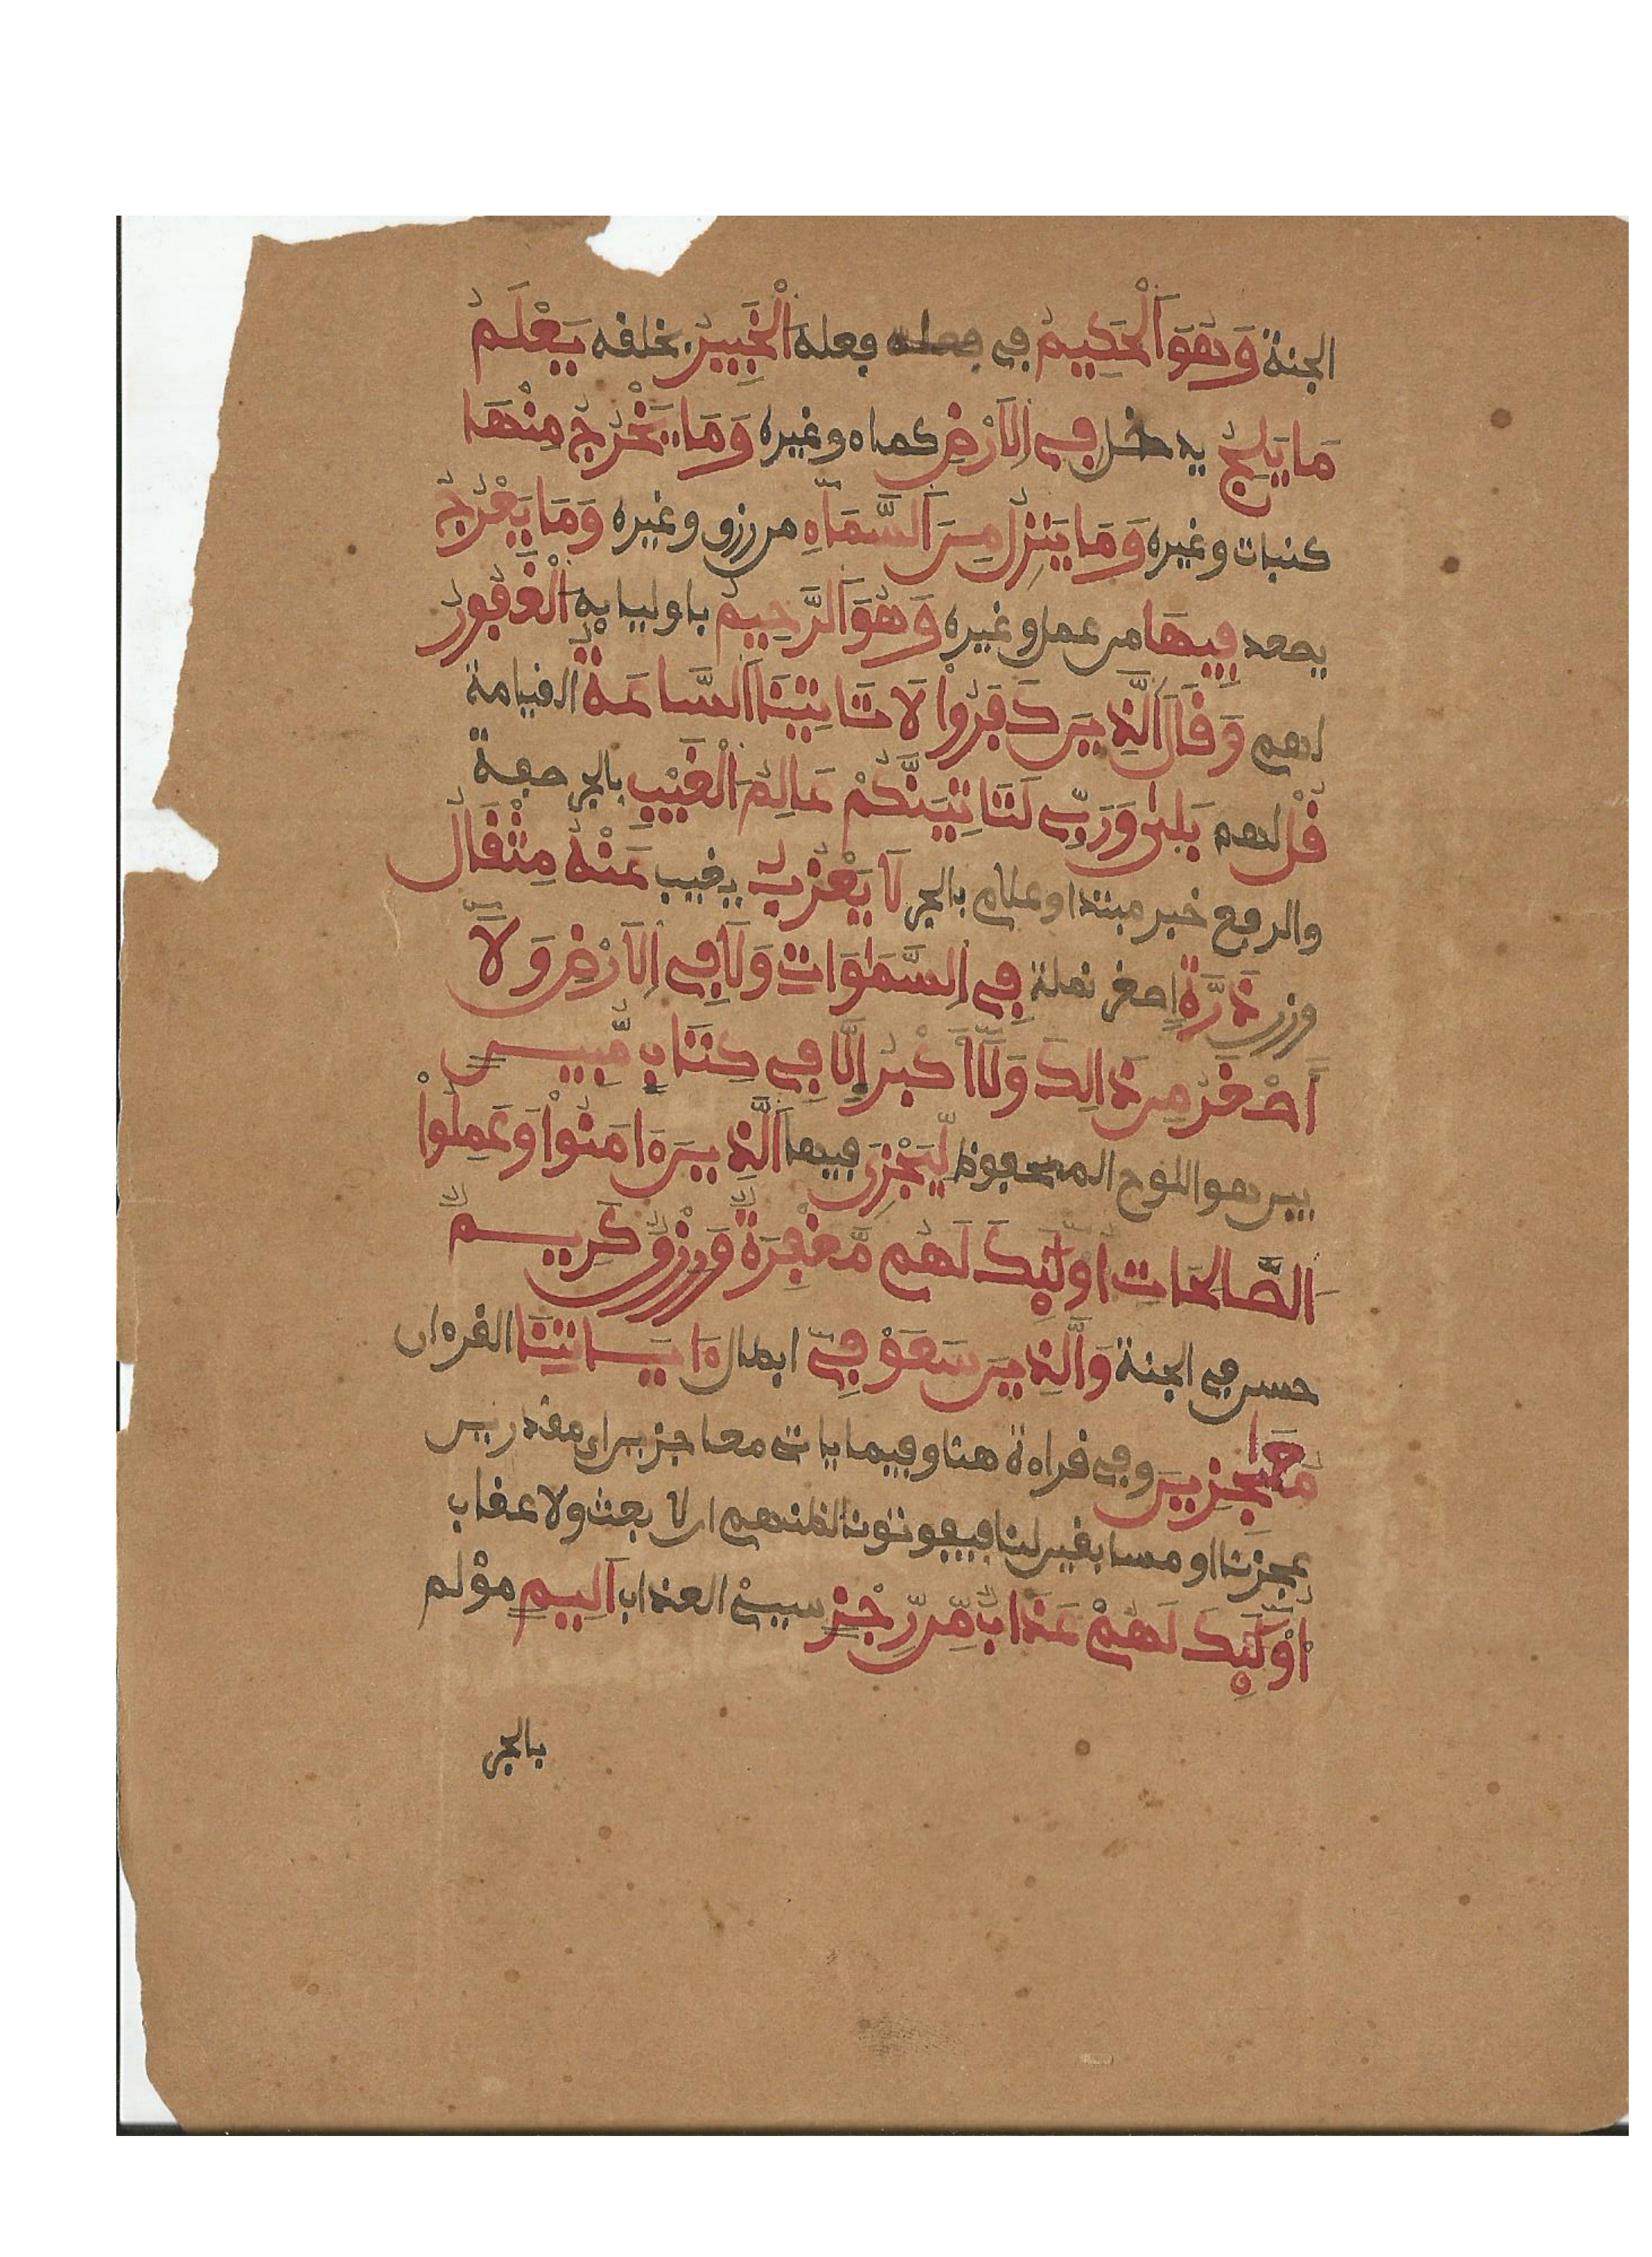 الجنة وَهُوَ اَلْحَكِيمُ في فعله فعله اَلْخَبِيرُ بخلفه يَعْلَمُ
مَا يَلِجُ يدخل فِي اِلَارْضِ كماء وغيره وَمَا يَخْرُجُ مِنْهَا
كنبات وغيره وَمَا يَنزِلُ مِنَ اَلسَّمَآءِ من رزق وغيره وَمَا يَعْرُجُ
يصعد فِيهَا من عمل وغيره وَهُوَ اَلرَّحِيمُ باوليايه اِلْغَفُورُ
لهم وَقَالَ اَلَّذِينَ كَفَرُواْ لَا تَاتِينَا اَلسَّاعَةُ القيامة
قُلْ لهم بَلىٰ وَرَبِّي لَتَاتِيَنَّكُمْ عَالِمُ اَلْغَيْبِ بالجر صفة
والرفع خبر مبتدا وعلام بالجر لَا يَعْزُبُ يغيب عَنْهُ مِثْقَالُ
وزن ذَرَّةٍ اصغر نملة فِي اِلسَّمَٰوَاتِ وَلَا فِي اِلَارْضِ وَلَآ
أَصْغَرُ مِن ذَالِكَ وَلَآ أَكْبَرُ إِلَّا فِي كِتَابٍ مُّبِينٍ
بين هو اللوح المحفوظ لِّيَجْزِيَ فيها اَلَّذِينَ ءَامَنُواْ وَعَمِلُواْ
الصَّالِحَاتِ أُوْلَٰٓئِكَ لَهُم مَّغْفِرَةٌ وَرِزْقٌ كَرِيمٌ
حسن في الجنة وَالَّذِينَ سَعَوْ فِيٓ ابطال ءَايَاتِنَا القرءان
مُعَٰجِزِينَ وفي قراءة هنا وفيما ياتى معاجزين اي مقدرين
عجزنا او مسابقين لنا فيفوتوننا لظنهم ان لا بعث ولا عقاب
أُوْلَٰٓئِكَ لَهُمْ عَذَابٌ مِّن رِّجْزٍ سيئ العذاب أَلِيمٍ مؤلم
بالجر